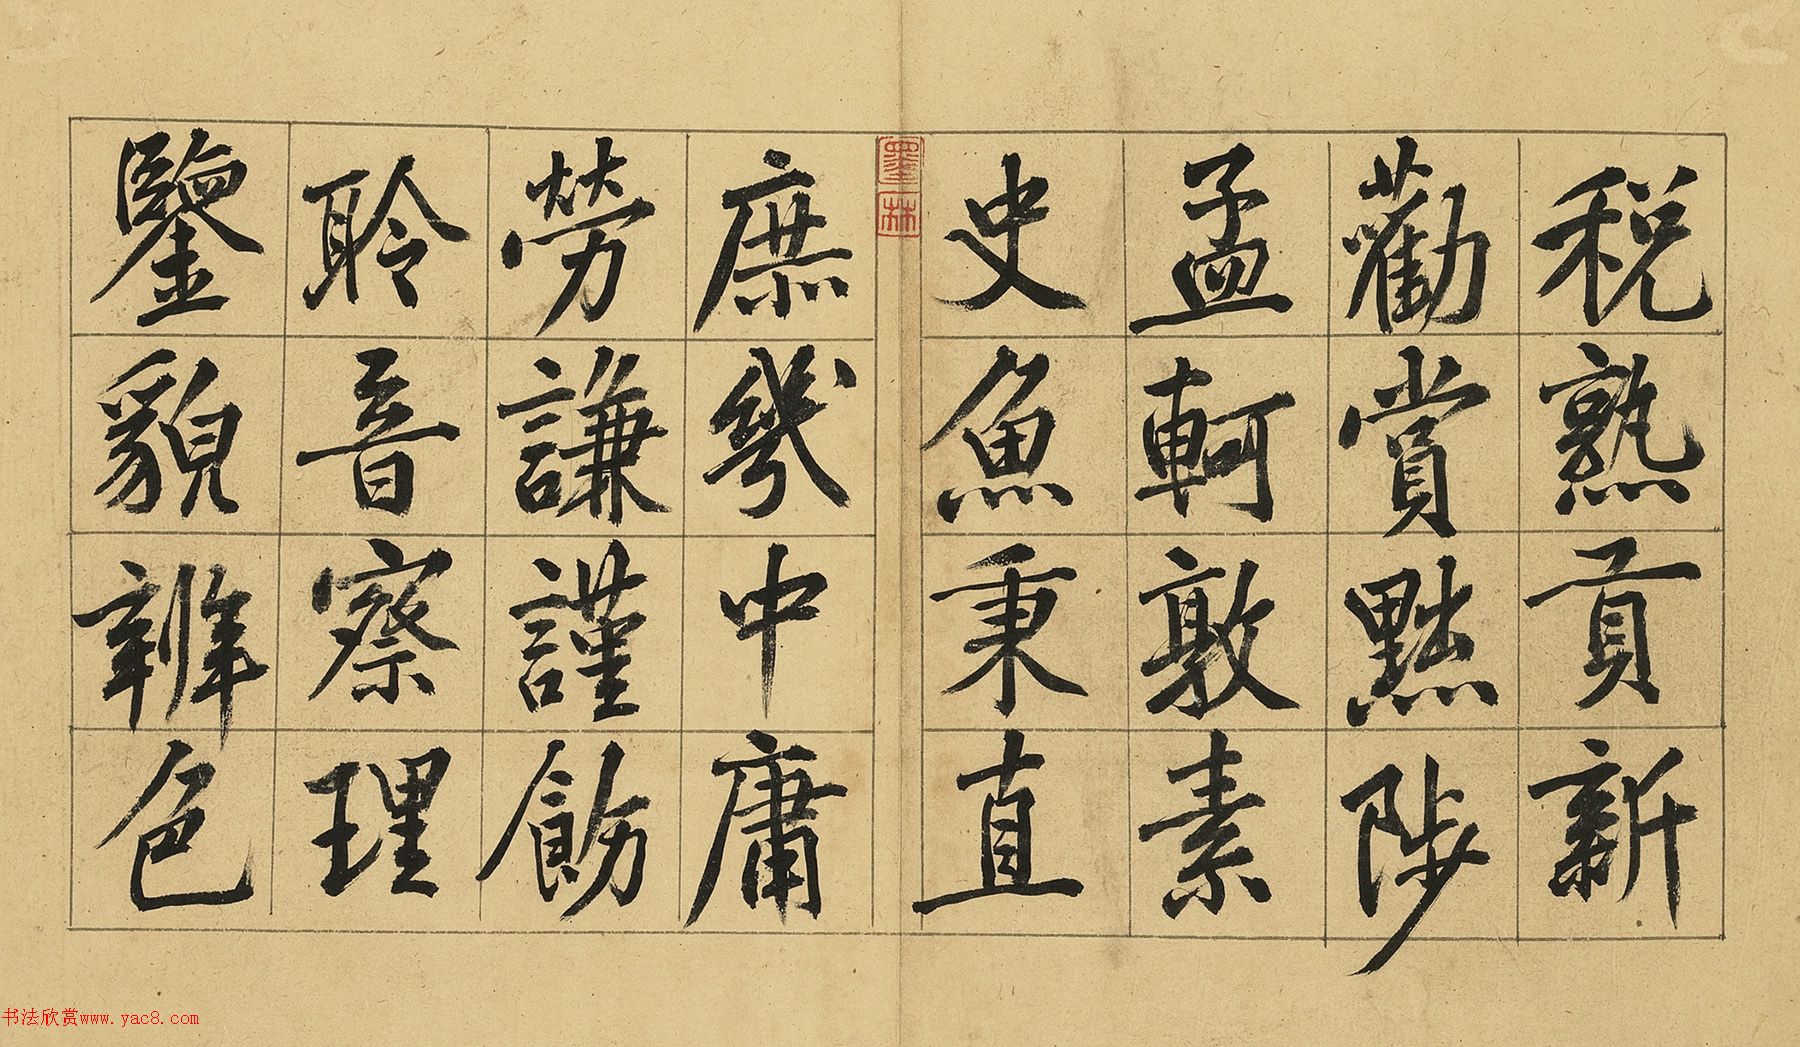 税熟貢新
勸賞黜陟
孟軻敦素
史魚秉直
墨林
庶幾中庸
勞謙謹飭
聆音察理
鑒貌辨色
书法欣赏www.yac8.com